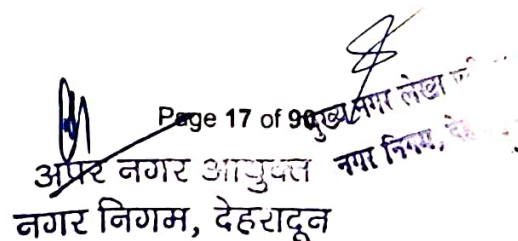 Page 17 of 90
मुख्य नगर लेखा
नगर निगम,
अपर नगर आयुक्त
नगर निगम, देहरादून